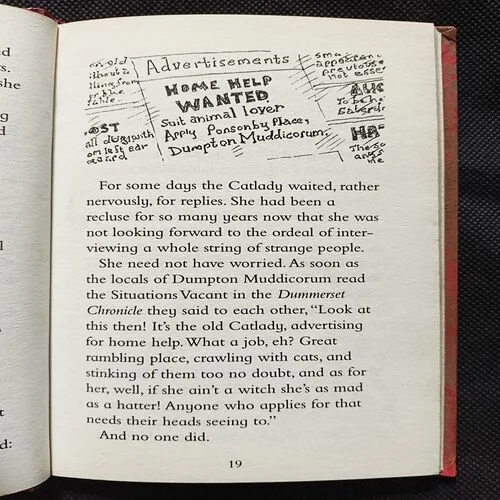 Advertisements
HOME HELP
WANTED
Suit animal lover
Apply Ponsonby Place,
Dumpton Muddicorum.
For some days the Catlady waited, rather
nervously, for replies. She had been a
recluse for so many years now that she was
not looking forward to the ordeal of inter-
viewing a whole string of strange people.
She need not have worried. As soon as
the locals of Dumpton Muddicorum read
the Situations Vacant in the Dummerset
Chronicle they said to each other, “Look at
this then! It’s the old Catlady, advertising
for home help. What a job, eh? Great
rambling place, crawling with cats, and
stinking of them too no doubt, and as for
her, well, if she ain’t a witch she’s as mad
as a hatter! Anyone who applies for that
needs their heads seeing to.”
And no one did.
19